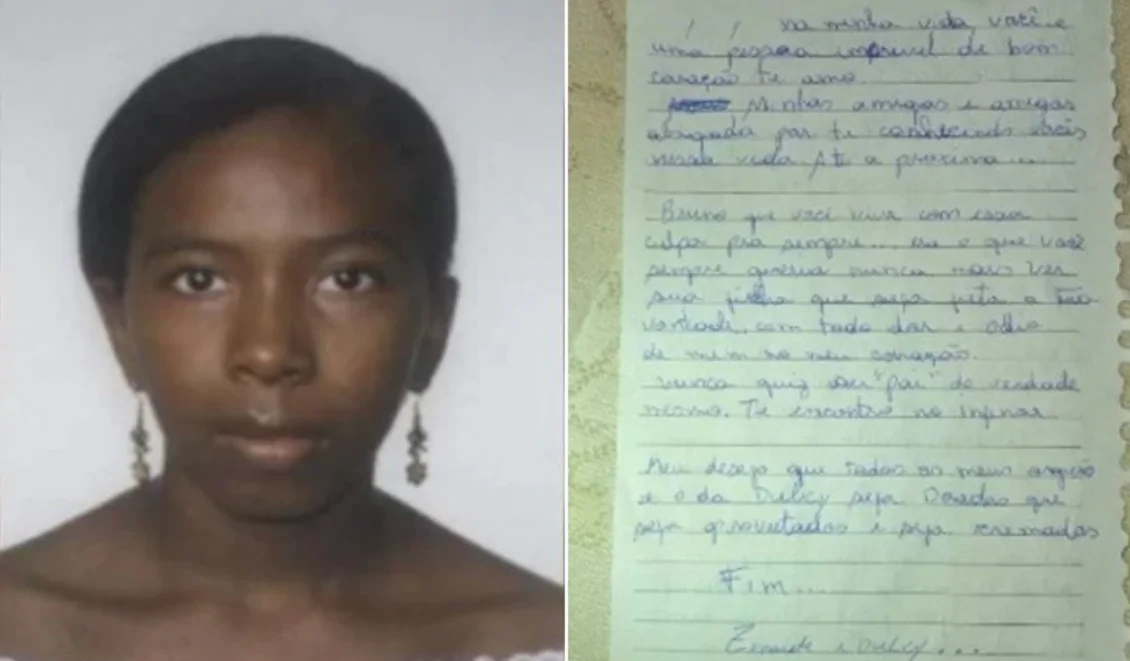 na minha vida, você e
uma pessoa de bom
coração te amo.
Minhas amigas e amigos
obrigada por te conhecendo vocês
nessa vida. Ate a proxima...
Bruno que você viva com essa
culpa pra sempre... era o que você
sempre queria nunca mais ver
sua filha que seja feita a tua
vontade, com todo dor e odio
de mim no meu coração.
Nunca quiz ser "pai" de verdade
mesmo. Te encontro no
Meu desejo que todos os meus orgão
e o da Dulcy seja Doados que
seja e seja cremados
Fim...
e Dulcy...